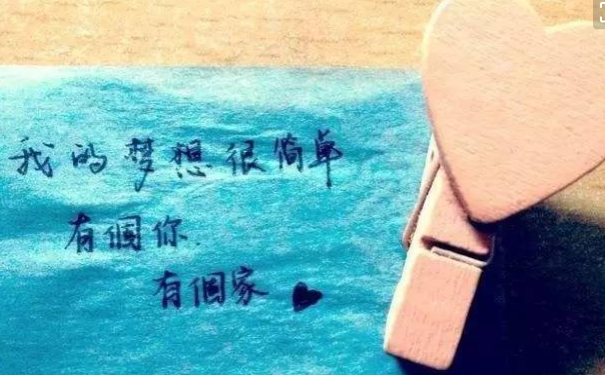 我的梦想很简单
有個你.
有個家